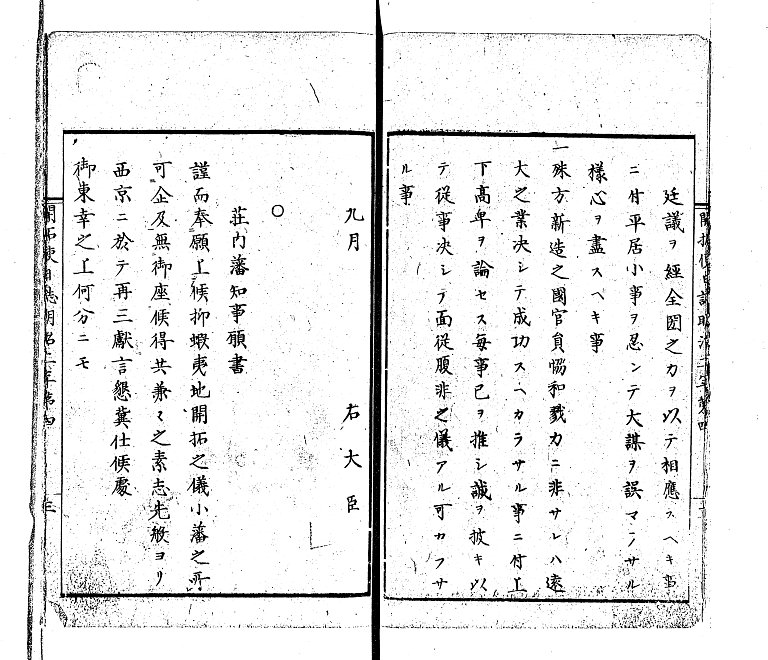 廷議ヲ經全國之力ヲ以テ相應スヘキ事
ニ付平居小事ヲ忍ンテ大謀ヲ誤マラサル
樣心ヲ盡スヘキ事
一殊方新造之國官員恊和戮力ニ非サレハ遠
大之業决シテ成功スヘカラサル事ニ付上
下高卑ヲ論セス每事己ヲ推シ誠ヲ披キ以
テ從事决シテ面從腹非之儀アル可カラサ
ル事
九月 右大臣
○
莊內藩知事願書
謹而奉願上候抑蝦夷地開拓之儀小藩之所
可企及無御座候得共兼々之素志先般ヨリ
西京ニ於テ再三獻言懇冀仕候處
御東幸之上何分ニモ
開拓使日誌明治二年第四